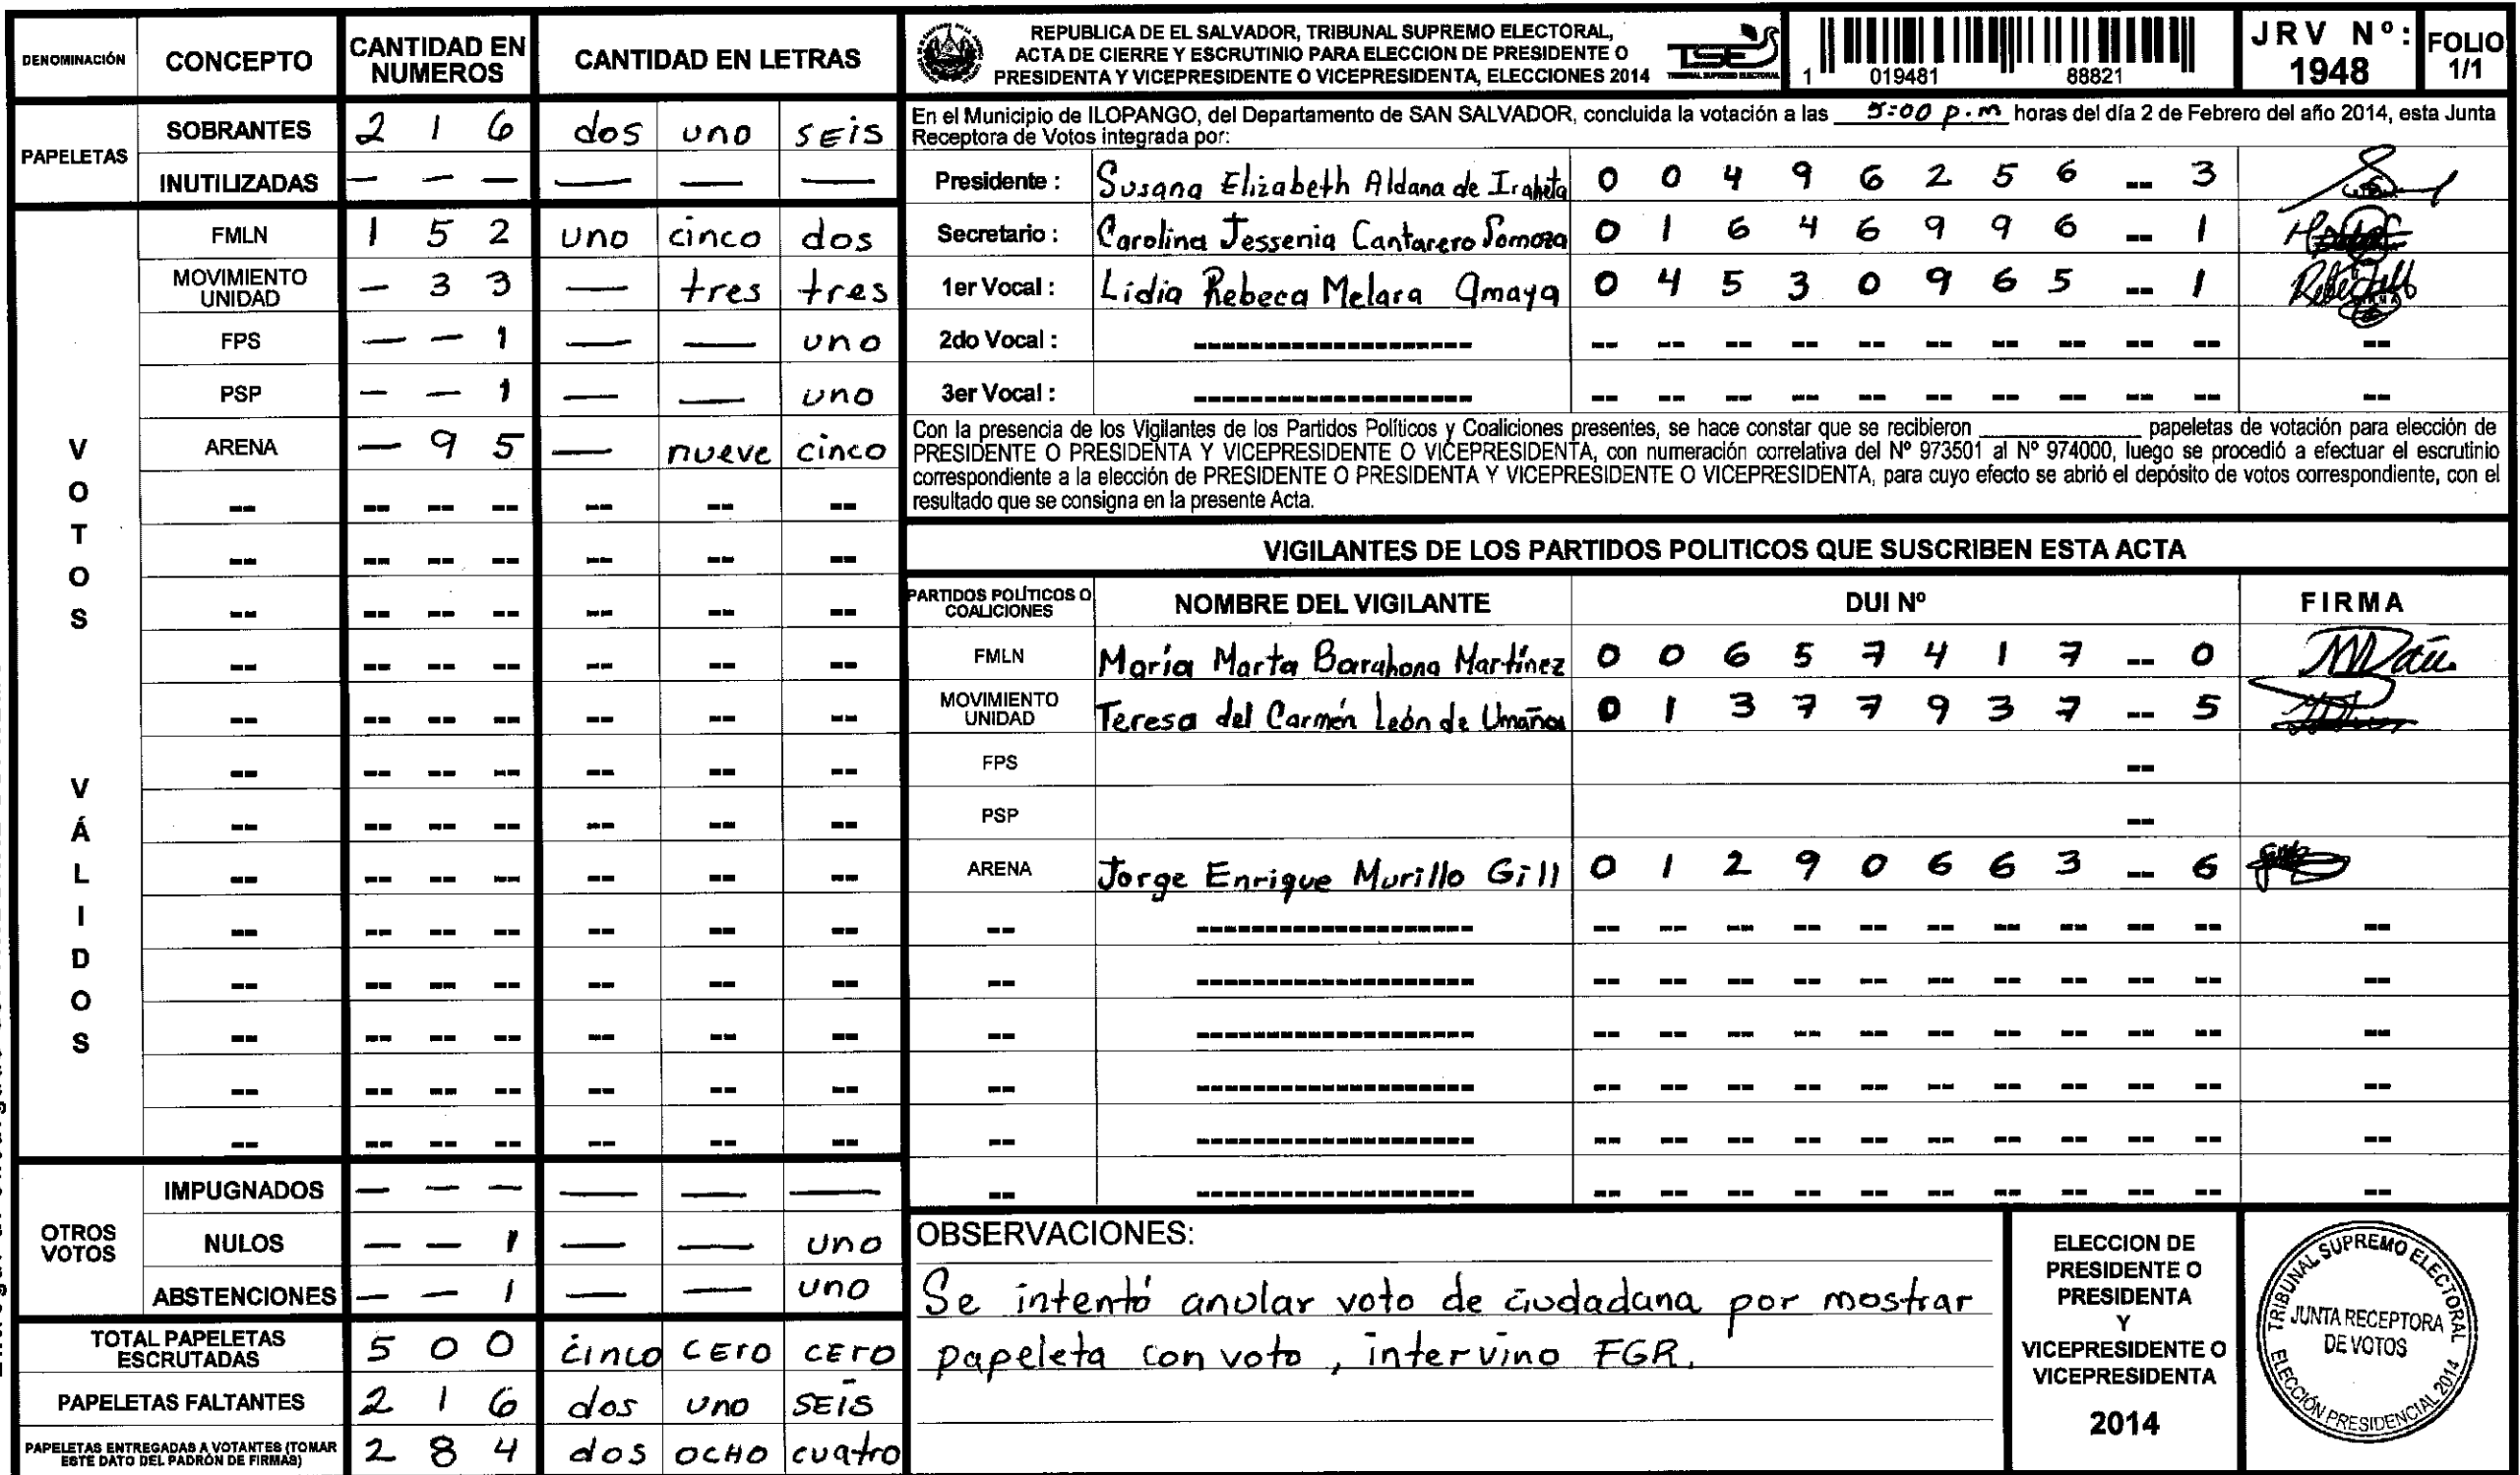 DENOMINACIÓN CONCEPTO CANTIDAD EN NUMEROS CANTIDAD EN LETRAS
PAPELETAS
SOBRANTES 2 1 6 dos uno SEIS
INUTILIZADAS — — — — — —
VOTOS VÁLIDOS
FMLN 1 5 2 uno cinco dos
MOVIMIENTO UNIDAD — 3 3 — tres tres
FPS — — 1 — — uno
PSP — — 1 — — uno
ARENA — 9 5 — nueve cinco
-- -- -- -- -- -- --
-- -- -- -- -- -- --
-- -- -- -- -- -- --
-- -- -- -- -- -- --
-- -- -- -- -- -- --
-- -- -- -- -- -- --
-- -- -- -- -- -- --
-- -- -- -- -- -- --
-- -- -- -- -- -- --
-- -- -- -- -- -- --
-- -- -- -- -- -- --
-- -- -- -- -- -- --
-- -- -- -- -- -- --
OTROS VOTOS
IMPUGNADOS — — — — — —
NULOS — — 1 — — uno
ABSTENCIONES — — 1 — — uno
TOTAL PAPELETAS ESCRUTADAS 5 0 0 cinco CErO CErO
PAPELETAS FALTANTES 2 1 6 dos uno SEIS
PAPELETAS ENTREGADAS A VOTANTES (TOMAR ESTE DATO DEL PADRÓN DE FIRMAS) 2 8 4 dos OCHO cuatro
REPUBLICA DE EL SALVADOR, TRIBUNAL SUPREMO ELECTORAL,
ACTA DE CIERRE Y ESCRUTINIO PARA ELECCION DE PRESIDENTE O
PRESIDENTA Y VICEPRESIDENTE O VICEPRESIDENTA, ELECCIONES 2014
TSE
TRIBUNAL SUPREMO ELECTORAL
1 019481 88821
JRV Nº: 1948
FOLIO 1/1
En el Municipio de ILOPANGO, del Departamento de SAN SALVADOR, concluida la votación a las 5:00 p.m horas del día 2 de Febrero del año 2014, esta Junta
Receptora de Votos integrada por:
Presidente : Susana Elizabeth Aldana de Iraheta 0 0 4 9 6 2 5 6 -- 3
Secretario : Carolina Jessenia Cantarero Somoza 0 1 6 4 6 9 9 6 -- 1
1er Vocal : Lidia Rebeca Melara Amaya 0 4 5 3 0 9 6 5 -- 1
2do Vocal : ------------------- -- -- -- -- -- -- -- -- -- -- --
3er Vocal : ------------------- -- -- -- -- -- -- -- -- -- -- --
Con la presencia de los Vigilantes de los Partidos Políticos y Coaliciones presentes, se hace constar que se recibieron ____________ papeletas de votación para elección de
PRESIDENTE O PRESIDENTA Y VICEPRESIDENTE O VICEPRESIDENTA, con numeración correlativa del Nº 973501 al Nº 974000, luego se procedió a efectuar el escrutinio
correspondiente a la elección de PRESIDENTE O PRESIDENTA Y VICEPRESIDENTE O VICEPRESIDENTA, para cuyo efecto se abrió el depósito de votos correspondiente, con el
resultado que se consigna en la presente Acta.
VIGILANTES DE LOS PARTIDOS POLITICOS QUE SUSCRIBEN ESTA ACTA
PARTIDOS POLÍTICOS O COALICIONES NOMBRE DEL VIGILANTE DUI Nº FIRMA
FMLN María Marta Barahona Martínez 0 0 6 5 7 4 1 7 -- 0
MOVIMIENTO UNIDAD Teresa del Carmén León de Umaña 0 1 3 7 7 9 3 7 -- 5
FPS --
PSP --
ARENA Jorge Enrique Murillo Gill 0 1 2 9 0 6 6 3 -- 6
-- ------------------- -- -- -- -- -- -- -- -- -- -- --
-- ------------------- -- -- -- -- -- -- -- -- -- -- --
-- ------------------- -- -- -- -- -- -- -- -- -- -- --
-- ------------------- -- -- -- -- -- -- -- -- -- -- --
-- ------------------- -- -- -- -- -- -- -- -- -- -- --
-- ------------------- -- -- -- -- -- -- -- -- -- -- --
OBSERVACIONES:
Se intentó anular voto de ciudadana por mostrar
papeleta con voto, intervino FGR.
ELECCION DE
PRESIDENTE O
PRESIDENTA
Y
VICEPRESIDENTE O
VICEPRESIDENTA
2014
TRIBUNAL SUPREMO ELECTORAL
JUNTA RECEPTORA
DE VOTOS
ELECCIÓN PRESIDENCIAL 2014